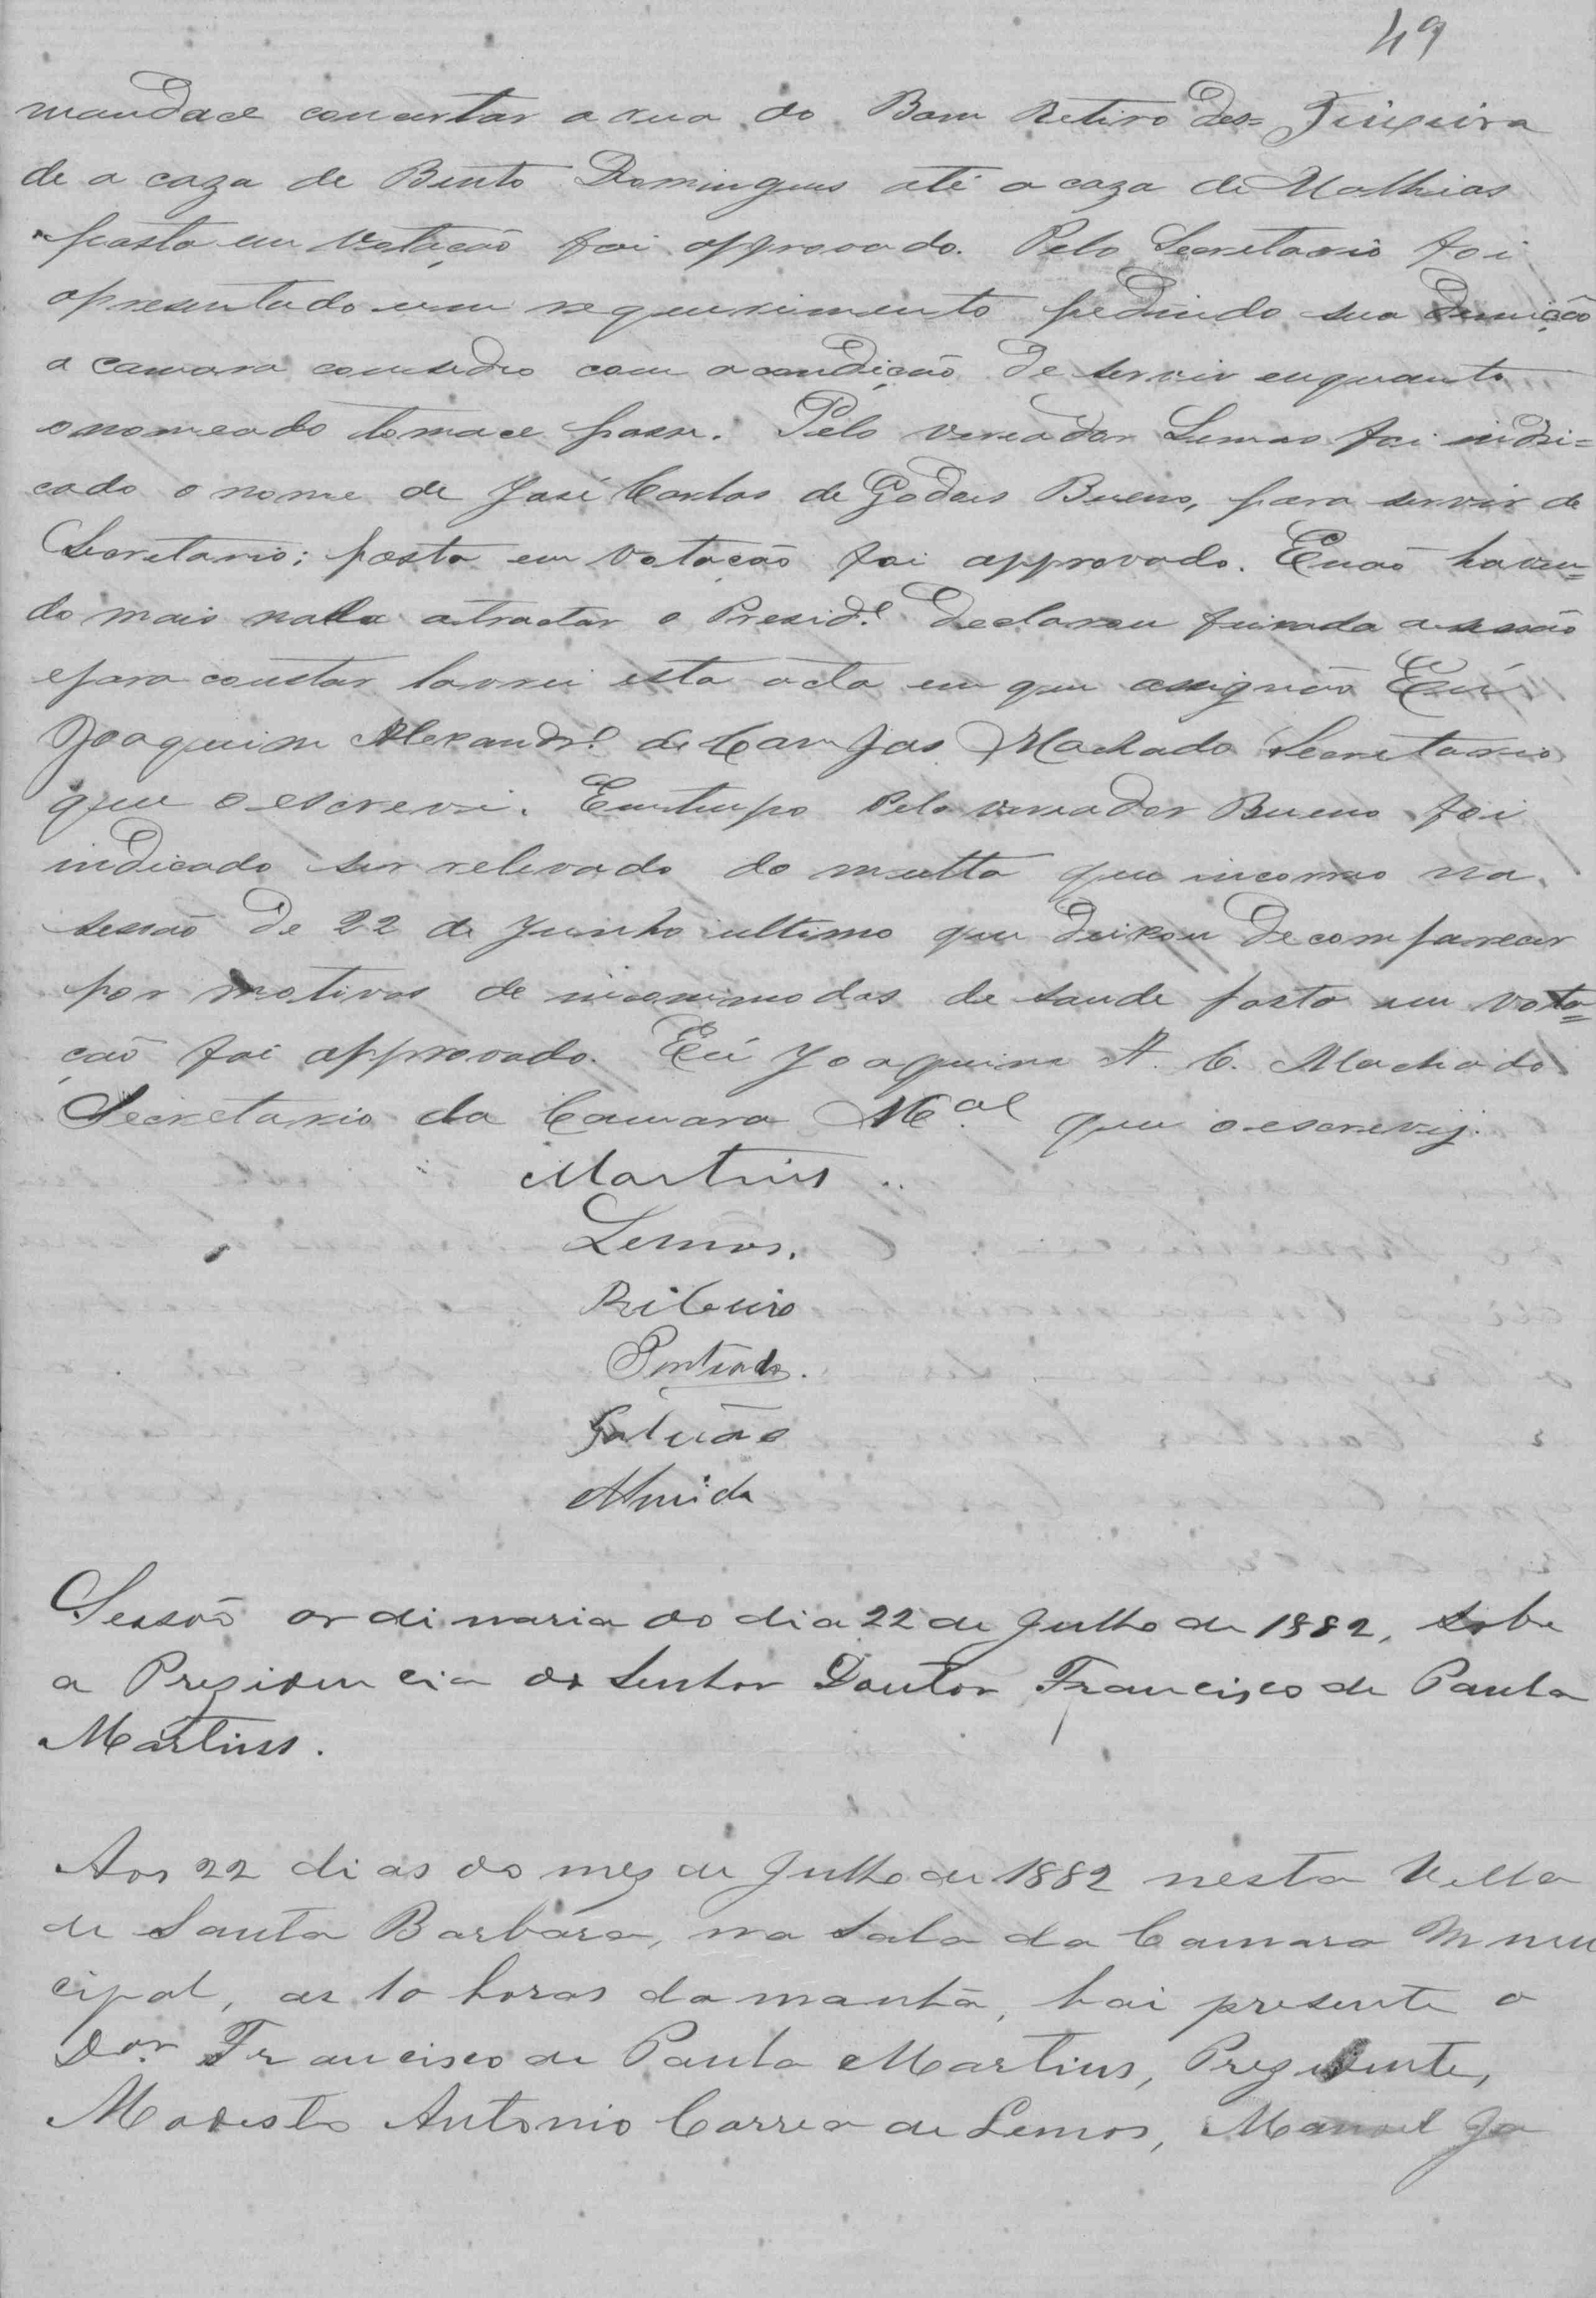 49
mandace concertar a rua do Bom Retiro des= Teixeira
de a caza de Bento Domingues até a caza de Mathias
posta em votação foi approvado. Pelo Secretario foi
apresentado um requerimento pedindo sua demição
a camara consedeo com a condição de servir enquanto
o nomeado tomace posse. Pelo vereador Lemos foi indi=
cado o nome de José Carlos de Godois Bueno, para servir de
Secretario; posto em votação foi approvado. E não haven=
do mais nada a tractar o Presid.e declarou finda a sessão
e para constar lavrei esta acta em que assignão Eu
Joaquim Alexandr.e de Campos Machado Secretario
que o escrevi. Em tempo Pelo vereador Bueno foi
indicado ser relevado do multa que incorreo na
sessão de 22 de Junho ultimo que deixou de comparecer
por motivos de incommodos de saude posto em vota=
ção foi approvado. Eu Joaquim A. C. Machado
Secretario da Camara M.al que o escrevij.
Martins
Lemos.
Ribeiro
Penteado.
Galvão
Almeida
Sessão ordinaria do dia 22 de Julho de 1882, sobe
a Prezidencia do Senhor Doutor Francisco de Paula
Martins.
Aos 22 dias do mez de Julho de 1882 nesta Villa
de Santa Barbara, na sala da Camara Muni
cipal, as 10 horas da manhã, hai presente o
Dor. Francisco de Paula Martins, Prezidente,
Modesto Antonio Correa de Lemos, Manoel Jo